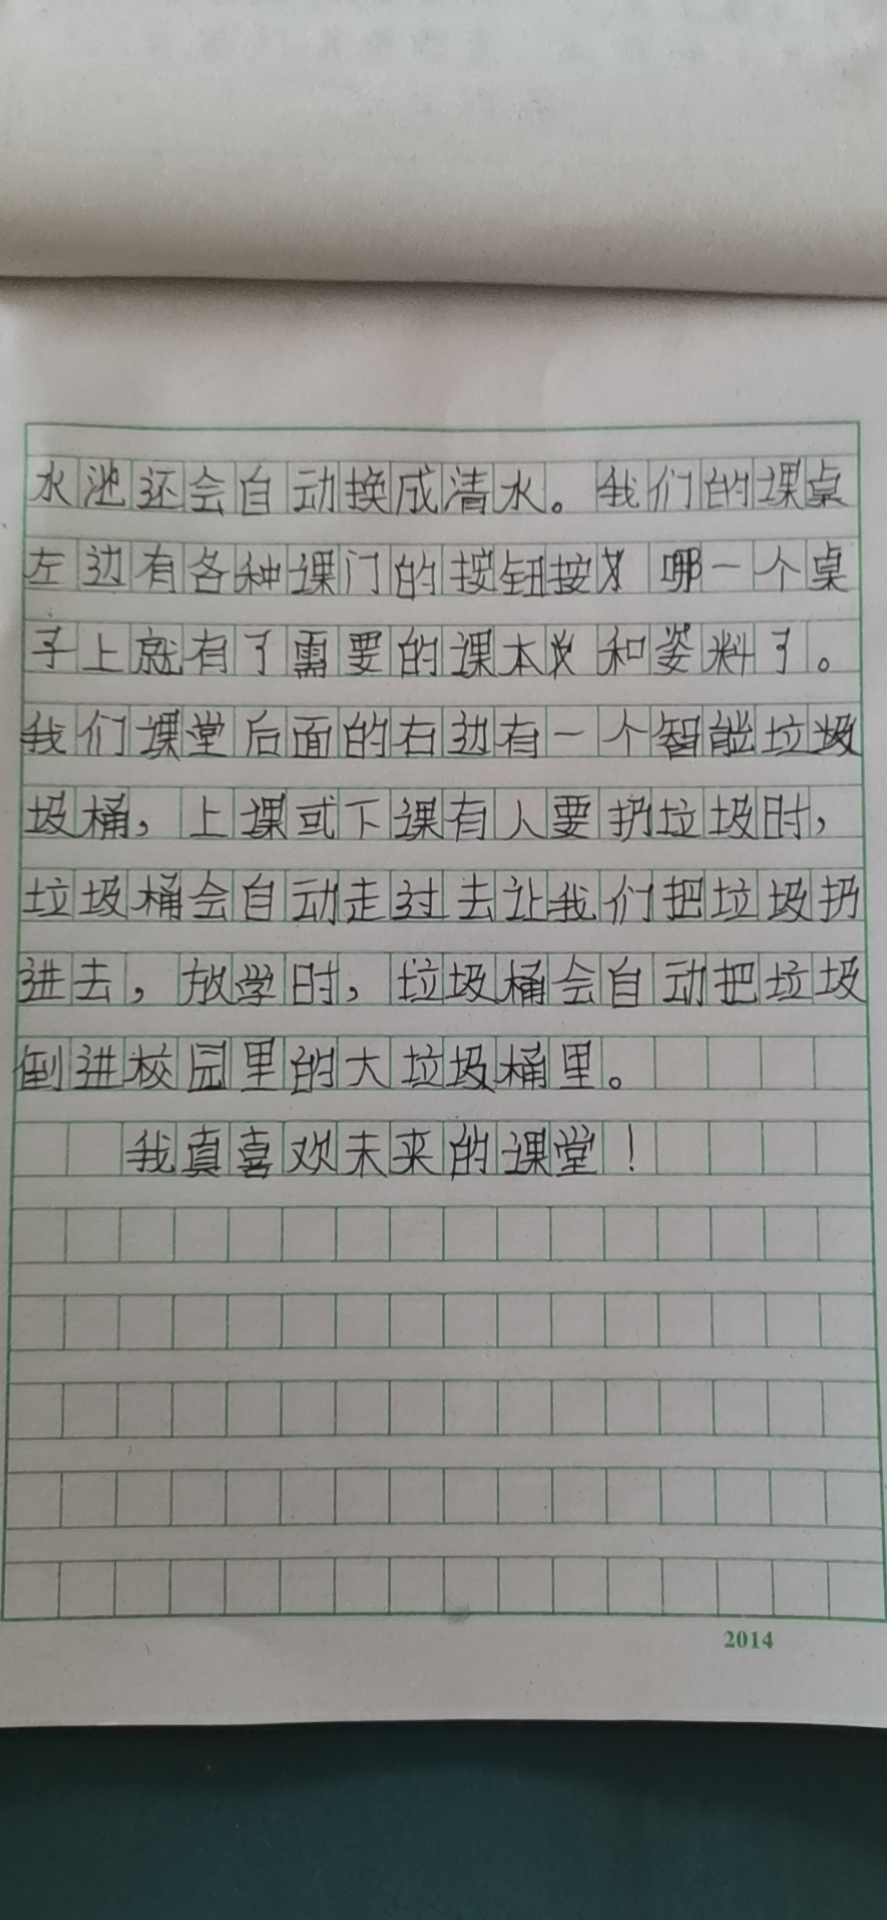 水池还会自动换成清水。我们的课桌
左边有各种课门的按钮按 哪一个桌
子上就有了需要的课本 和姿料了。
我们课堂后面的右边有一个智能垃圾
圾桶，上课或下课有人要扔垃圾时，
垃圾桶会自动走过去让我们把垃圾扔
进去，放学时，垃圾桶会自动把垃圾
倒进校园里的大垃圾桶里。
我真喜欢未来的课堂！
2014